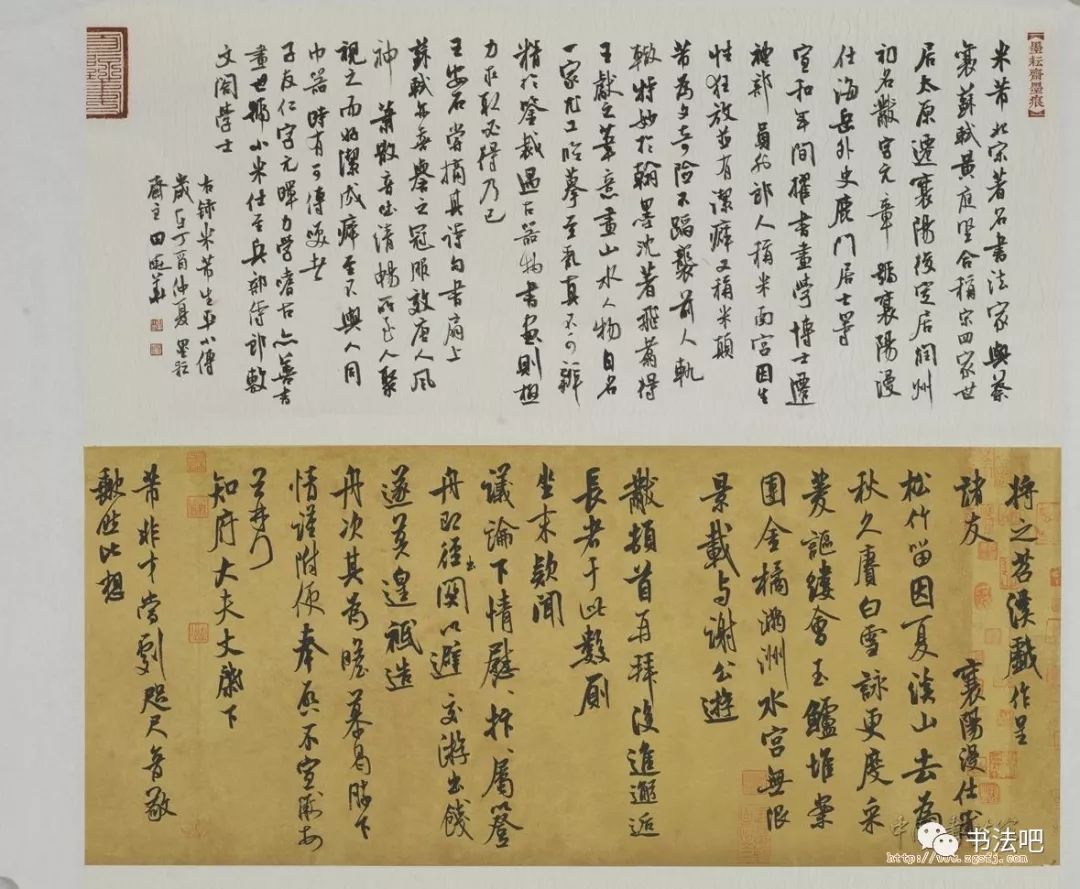 【墨耘齋墨痕】
米芾北宋著名書法家與蔡
襄蘇軾黄庭坚合稱宋四家世
居太原遷襄陽後定居潤州
初名黻字元章 號襄陽漫
仕海岳外史鹿門居士等
宣和年間擢書畫學博士遷
禮部員外郎人稱米南宫因生
性狂放并有潔癖又稱米顛
芾為文奇险不蹈襲前人軌
轍特妙於翰墨沈著飛翥得
王獻之筆意畫山水人物自名
一家尤工临摹至亂真不可辨
精於鉴裁遇古器物書画則極
力求取必得乃已
王安石嘗摘其诗句書扇上
蘇軾亦喜譽之冠服效唐人風
神萧散音吐清暢所至人聚
視之而好潔成癖至不與人同
巾器時有可傳笑者
子友仁字元暉力學嗜古亦善书
畫世號小米仕至兵部侍郎敷
文閣學士
右録米芾生平小傳
歲在丁酉仲夏墨耘
齋主田
将之苕溪戲作呈
諸友 襄陽漫仕黻
松竹留因夏溪山去為
秋久賡白雪詠更度采
菱謳縷會玉鱸堆案
團金橘滿洲水宫無限
景載与謝公遊
黻頓首再拜後進邂逅
長者于此數厕
坐末款聞
議論下情慰、抃、属登
舟即徑出關以避交游出餞
遂莫遑祗造
舟次其為瞻慕曷勝下
情謹附便奉啓不宣
知府大夫丈棨下
芾非才當劇咫尺音敬
歉然比想
书法吧
http://www.zgsfj.com